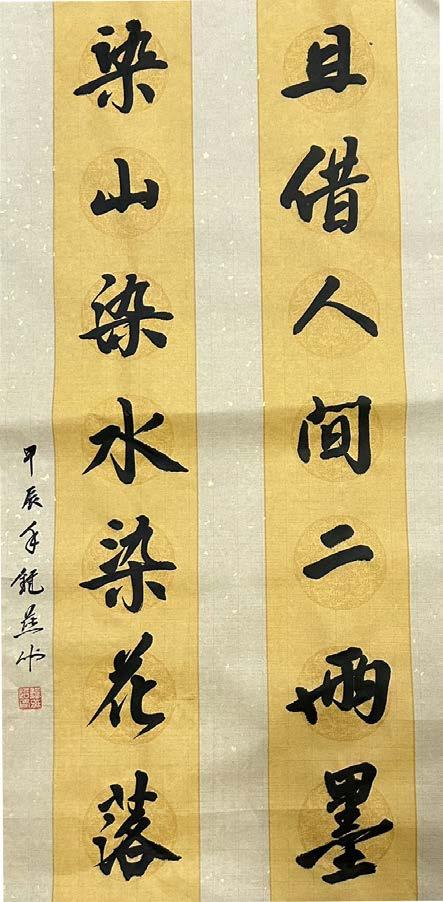 且借人间二两墨
染山染水染花落
甲辰年